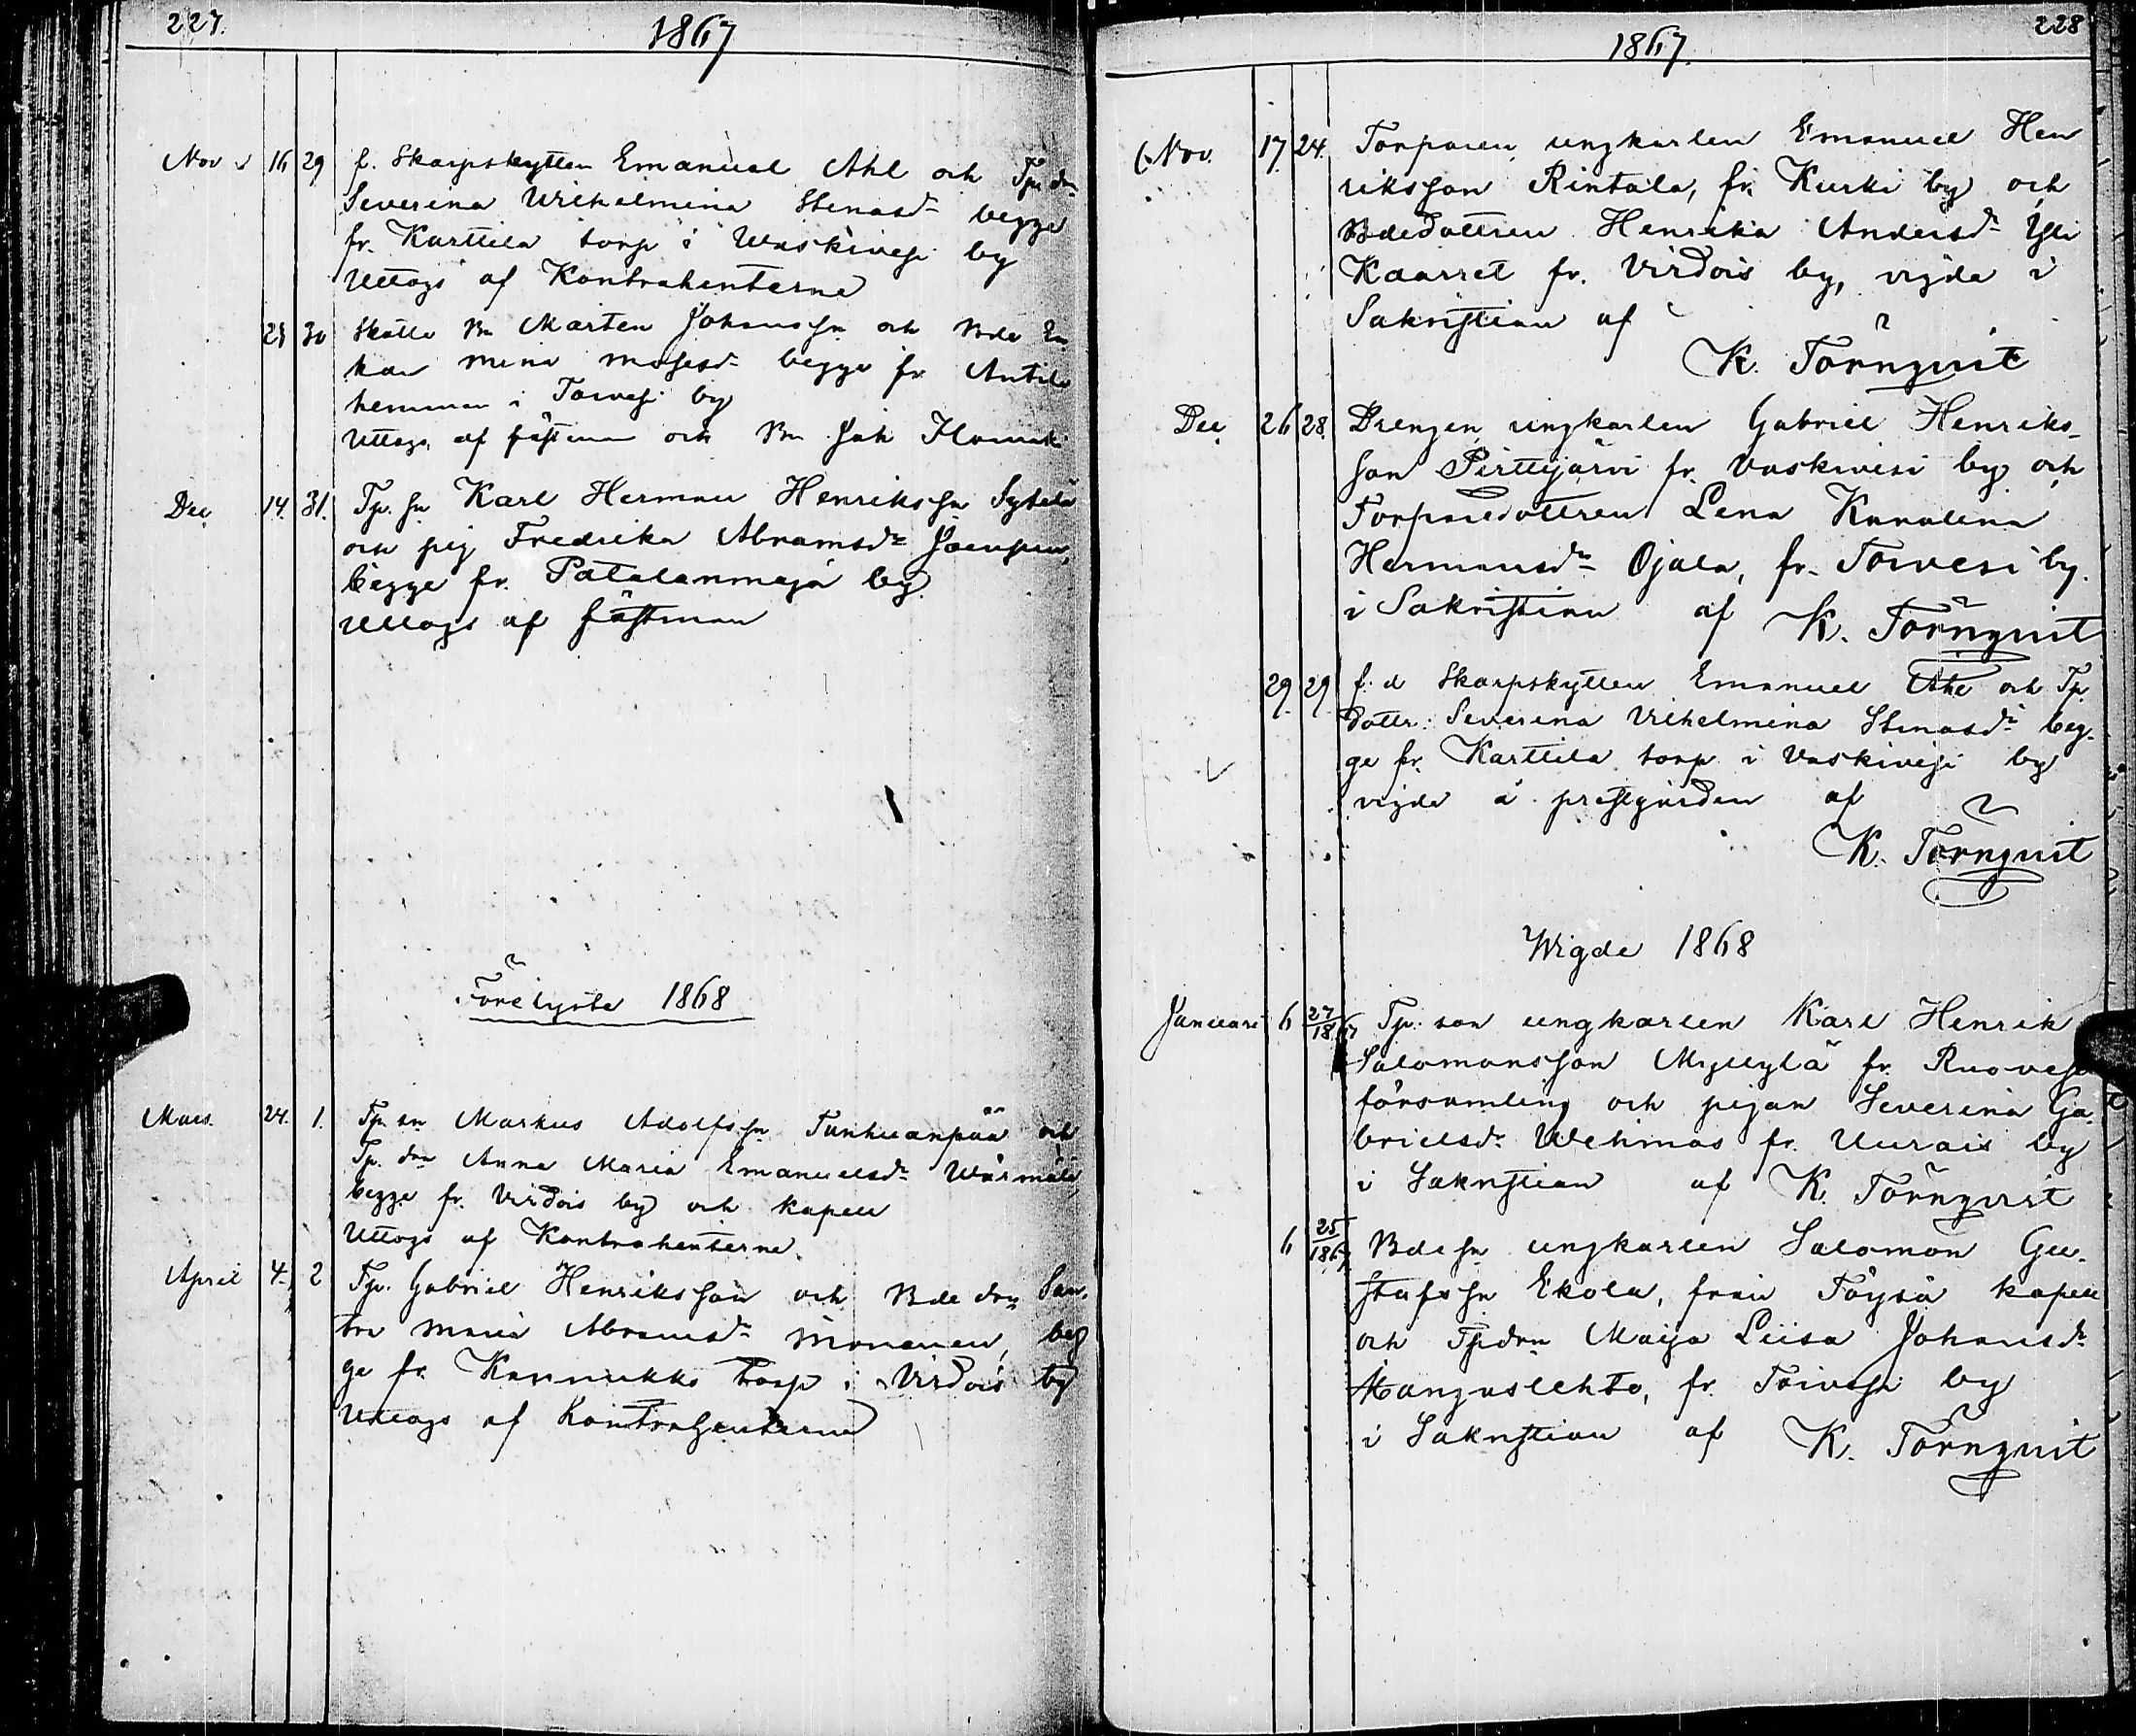 227.
1867
Nov 16 29 f. Skarpskytten Emanuel Ahl och Tp. dr
Severina Wilhelmina Stenasdr begge
fr. Karttila torp i Waskivesi by
Uttogs af Kontrahenterne
30 Mårten Johanssn och Bde En
kan Mina Mosesdr begge fr Antila
hemman i Toivesi by
Uttogs af fästman och Bn Joh
Dec 14. 31. Tp. sn Karl Herman Henrikssn
och pig Fredrika Abramsdr
begge fr. Patalanmaja by
Uttogs af fästman
Förelyste 1868
Mars. 24. 1. Tp. sn Markus Adolfssn Tunkuanpää och
Tp. drn Anna Maria Emanuelsdr
begge fr Virdois by och kapell
Uttogs af Kontrahenterne.
April 4. 2 Tp. Gabriel Henriksson och Bde drn San
tra Maria Abramsdr Mononen, beg
ge fr. Kannukko torp i Virdois by
Uttogs af Kontrahenterne
228
1867.
Nov. 17. 24. Torparen, ungkarlen Emanuel Hen
riksson Rintala, fr. Kurki by och
Bdedottren Henrika Andersdr Yli
Kaarret fr. Virdois by, vigde i
Sakristian af
K. Törnqvist
Dec 26 28. Drengen, ungkarlen Gabriel Henriks-
son Pirttijärvi fr. Vaskivesi by och
Torparedottren Lena Karolina
Hermansdr Ojala, fr. Toivesi by.
i Sakristian af K. Törnqvist
29. 29 f. d Skarpskytten Emanuel Ahl och Tp.
dottr: Severina Vilhelmina Stenasdr beg-
ge fr. Karttila torp i Vaskivesi by
vigde å prestgården af
K. Törnqvist
Wigde 1868
Januari 6 27/1867 Tp. son ungkarlen Karl Henrik
Salomonsson Myllylä fr. Ruovesi
församling och pigan Severina Ga-
brielsdr Wehmas fr. Uurais by
i Sakristian af K. Törnqvist
6 25/1867 Bde sn ungkarlen Salomon Gu-
stafssn Ekola, från Töysä kapell
och Tpdrn Maija Liisa Johansdr
Kangaslehto, fr. Toivesi by
i Sakristian af K. Törnqvist